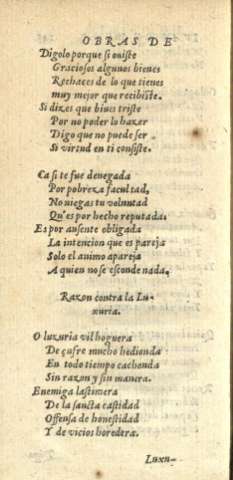 OBRAS DE
Digolo porque si ouiste
Graciosos algunos bienes
Rechaces de lo que tienes
muy mejor que recibiste.
Si dizes que biues triste
Por no poder lo hazer
Digo que no puede ser
Si virtud en ti consiste.
Ca si te fue denegada
Por pobreza facultad,
No niegas tu voluntad
Qu'es por hecho reputada.
Es por ausente obligada
La intencion que es pareja
Solo el animo apareja
A quien no se esconde nada.
Razon contra la Lu-
xuria.
O luxuria vil hoguera
De çufre mucho hedionda
En todo tiempo cachonda
Sin razon y sin manera.
Enemiga lastimera
De la sancta castidad
Offensa de honestidad
Y de vicios heredera.
Luxu-